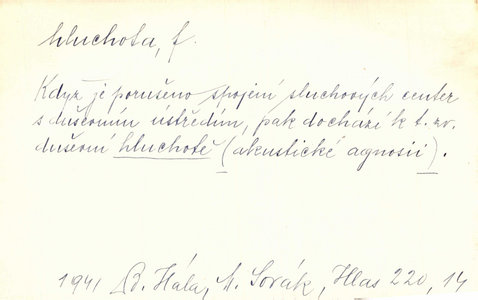 hluchota, f.
Když je porušeno spojení sluchových center
s duševním ústředím, pak dochází k t. zv.
duševní hluchotě (akustické agnosii).
1941 B. Hála, M. Sovák, Hlas 220, 14